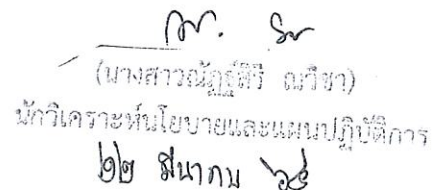 (นางสาวณัฏฐ์สิรี ณวิชา)
นักวิเคราะห์นโยบายและแผนปฏิบัติการ
๒๒ มีนาคม ๖๕